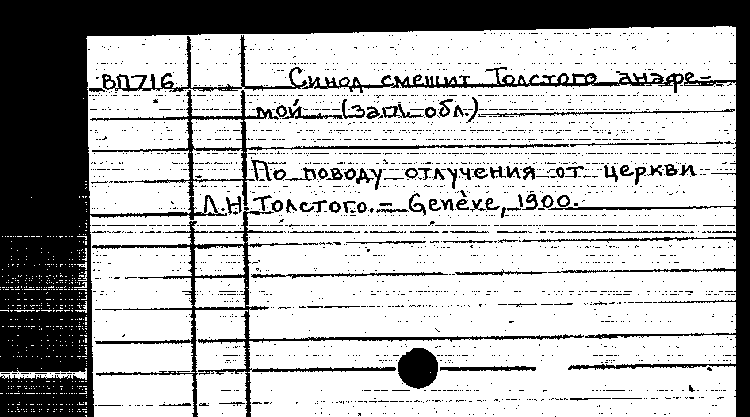 ВП716 Синод смешит Толстого анафе=
мой (загл. обл.)
По поводу отлучения от церкви
Л.Н. Толстого. – Genève, 1900.